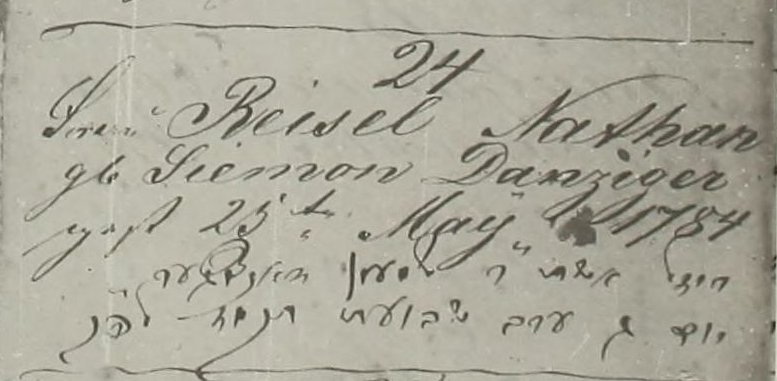 24
Frau Reisel Nathan
gb Siemon Danziger
gest 25t May 1784
רייזל אשת ר' שמעון דאנציגער
יום ג ערב שבועות תקמד לפק